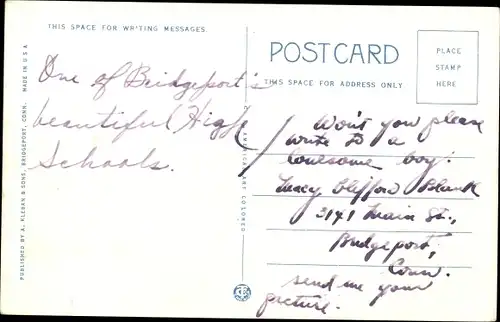 THIS SPACE FOR WRITING MESSAGES
POSTCARD
THIS SPACE FOR ADDRESS ONLY
PLACE
STAMP
HERE
One of Bridgeport's
beautiful High
Schools.
Won't you please
write to a
lonesome boy:
Clifford Blank
3141 Main St.,
Bridgeport,
Conn.
send me your
picture.
PUBLISHED BY A. KLEBAN & SONS, BRIDGEPORT, CONN. MADE IN U S A
AMERICAN ART COLORED